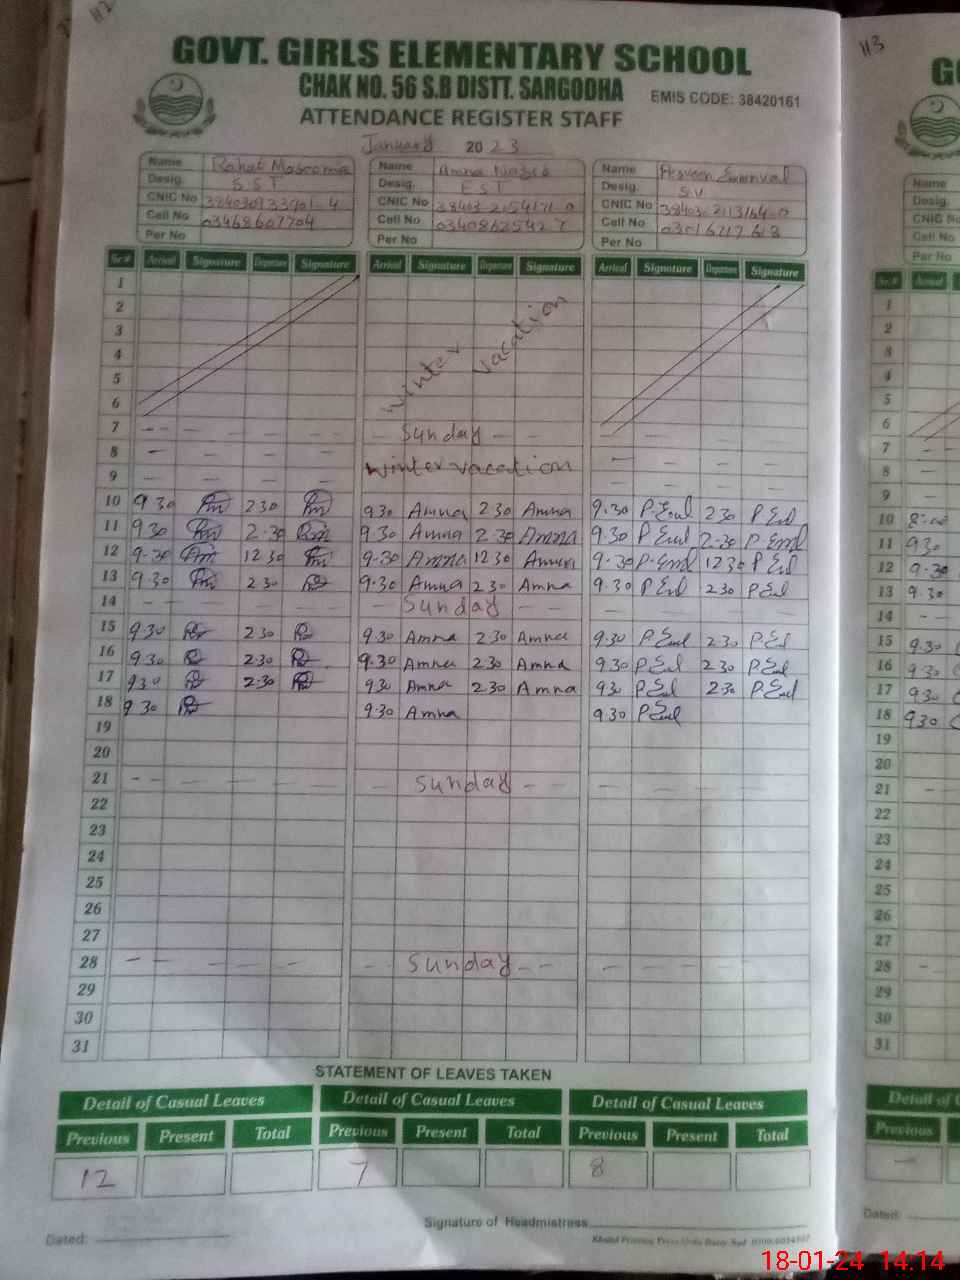 112
GOVT. GIRLS ELEMENTARY SCHOOL
CHAK NO. 56 S.B DISTT. SARGODHA
EMIS CODE: 38420161
ATTENDANCE REGISTER STAFF
January 2023
Name Rahat Name Amna Name
Desig. SST Desig. EST Desig. SV
CNIC No CNIC No CNIC No
Cell No 03468607704 Cell No 03408625427 Cell No
Per No Per No Per No
Sr# Arrival Signature Departure Signature Arrival Signature Departure Signature Arrival Signature Departure Signature
1
2
3
4
5
6
winter vacation
7 -- Sunday --
8
winter vacation
9
10 9 30 2 30 9 30 Amna 2 30 Amna 9.30 2 30
11 9 30 2.30 9 30 Amna 2 30 Amna 9 30 2.30
12 9.30 12 30 9.30 Amna 12 30 Amna 9.30 12 30
13 9 30 2 30 9.30 Amna 2 30 Amna 9 30 2 30
14 -- Sunday --
15 9.30 2 30 9.30 Amna 2 30 Amna 9.30 2 30
16 9.30 2.30 9.30 Amna 2 30 Amna 9 30 2 30
17 9 30 2.30 9 30 Amna 2 30 Amna 9 30 2.30
18 9 30 9.30 Amna 9.30
19
20
21 -- Sunday --
22
23
24
25
26
27
28 -- Sunday --
29
30
31
STATEMENT OF LEAVES TAKEN
Detail of Casual Leaves Detail of Casual Leaves Detail of Casual Leaves
Previous Present Total Previous Present Total Previous Present Total
12 7 8
Signature of Headmistress
Dated:
113
G
Name
Desig.
CNIC No
Cell No
Per No
Sr# Arrival
1
2
3
4
5
6
7
8
9
10
11 9 30
12 9.30
13 9.30
14
15 9.30
16 9.30
17 9.30
18 9 30
19
20
21
22
23
24
25
26
27
28
29
30
31
Detail of
Previous
Dated:
18-01-24 14:14